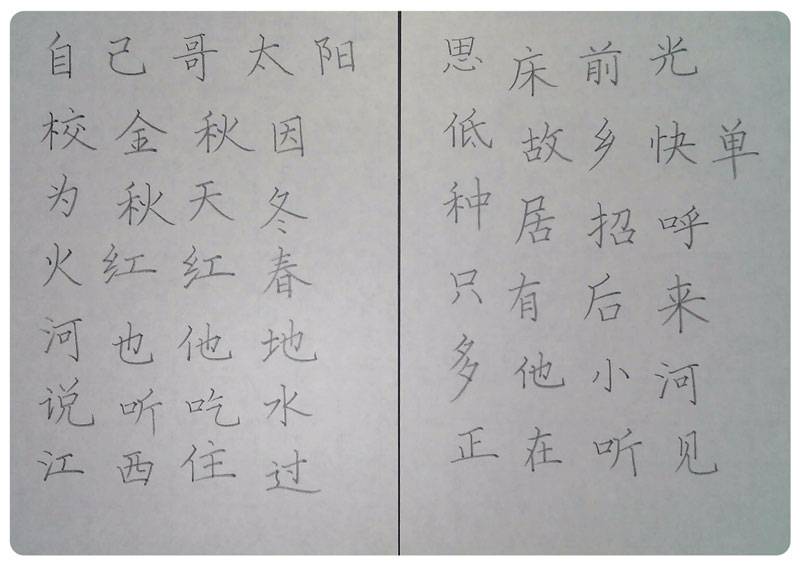 自己哥太阳
校金秋因
为秋天冬
火红红春
河也他地
说听吃水
江西住过
思床前光
低故乡快单
种居招呼
只有后来
多他小河
正在听见